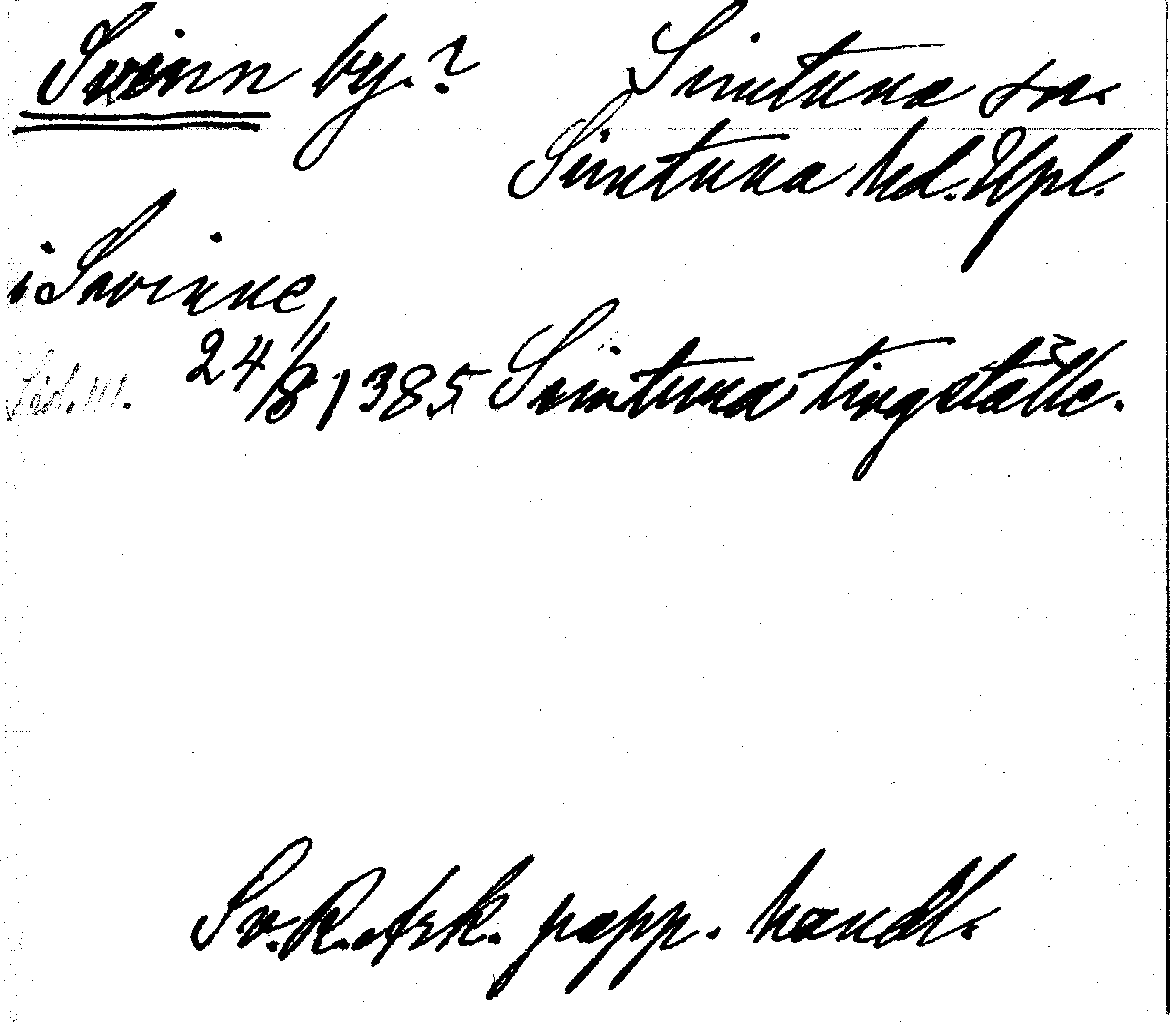 Svinn by.? Simtuna sn.
Simtuna hd. Upl.
i Swinne,
24/8 1385 Simtuna tingställe.
Sv. R. Ark. papp. handl.